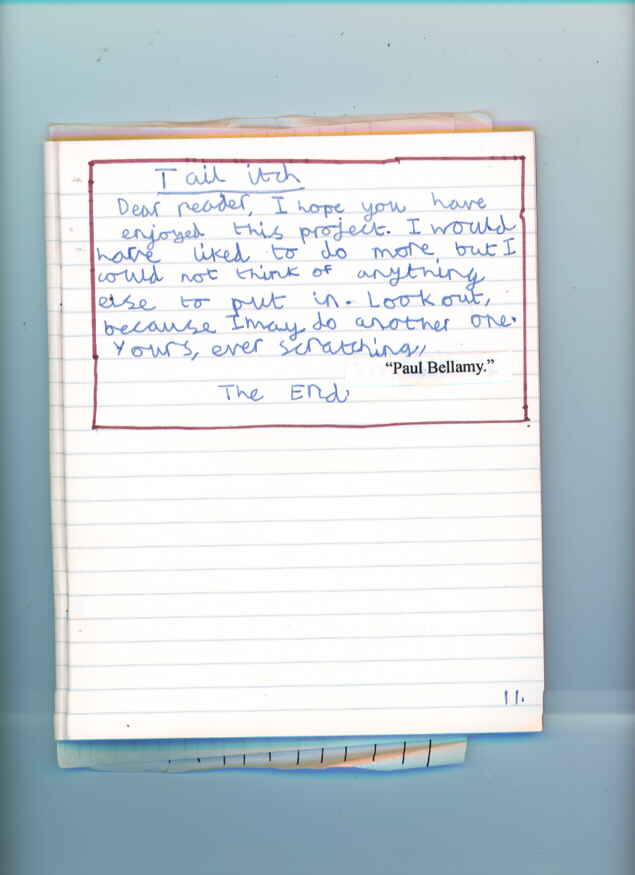 Tail itch
Dear reader, I hope you have
enjoyed this project. I would
have liked to do more, but I
could not think of anything
else to put in. Look out,
because I may do another one.
Yours, ever scratching,
“Paul Bellamy.”
The End.
11.